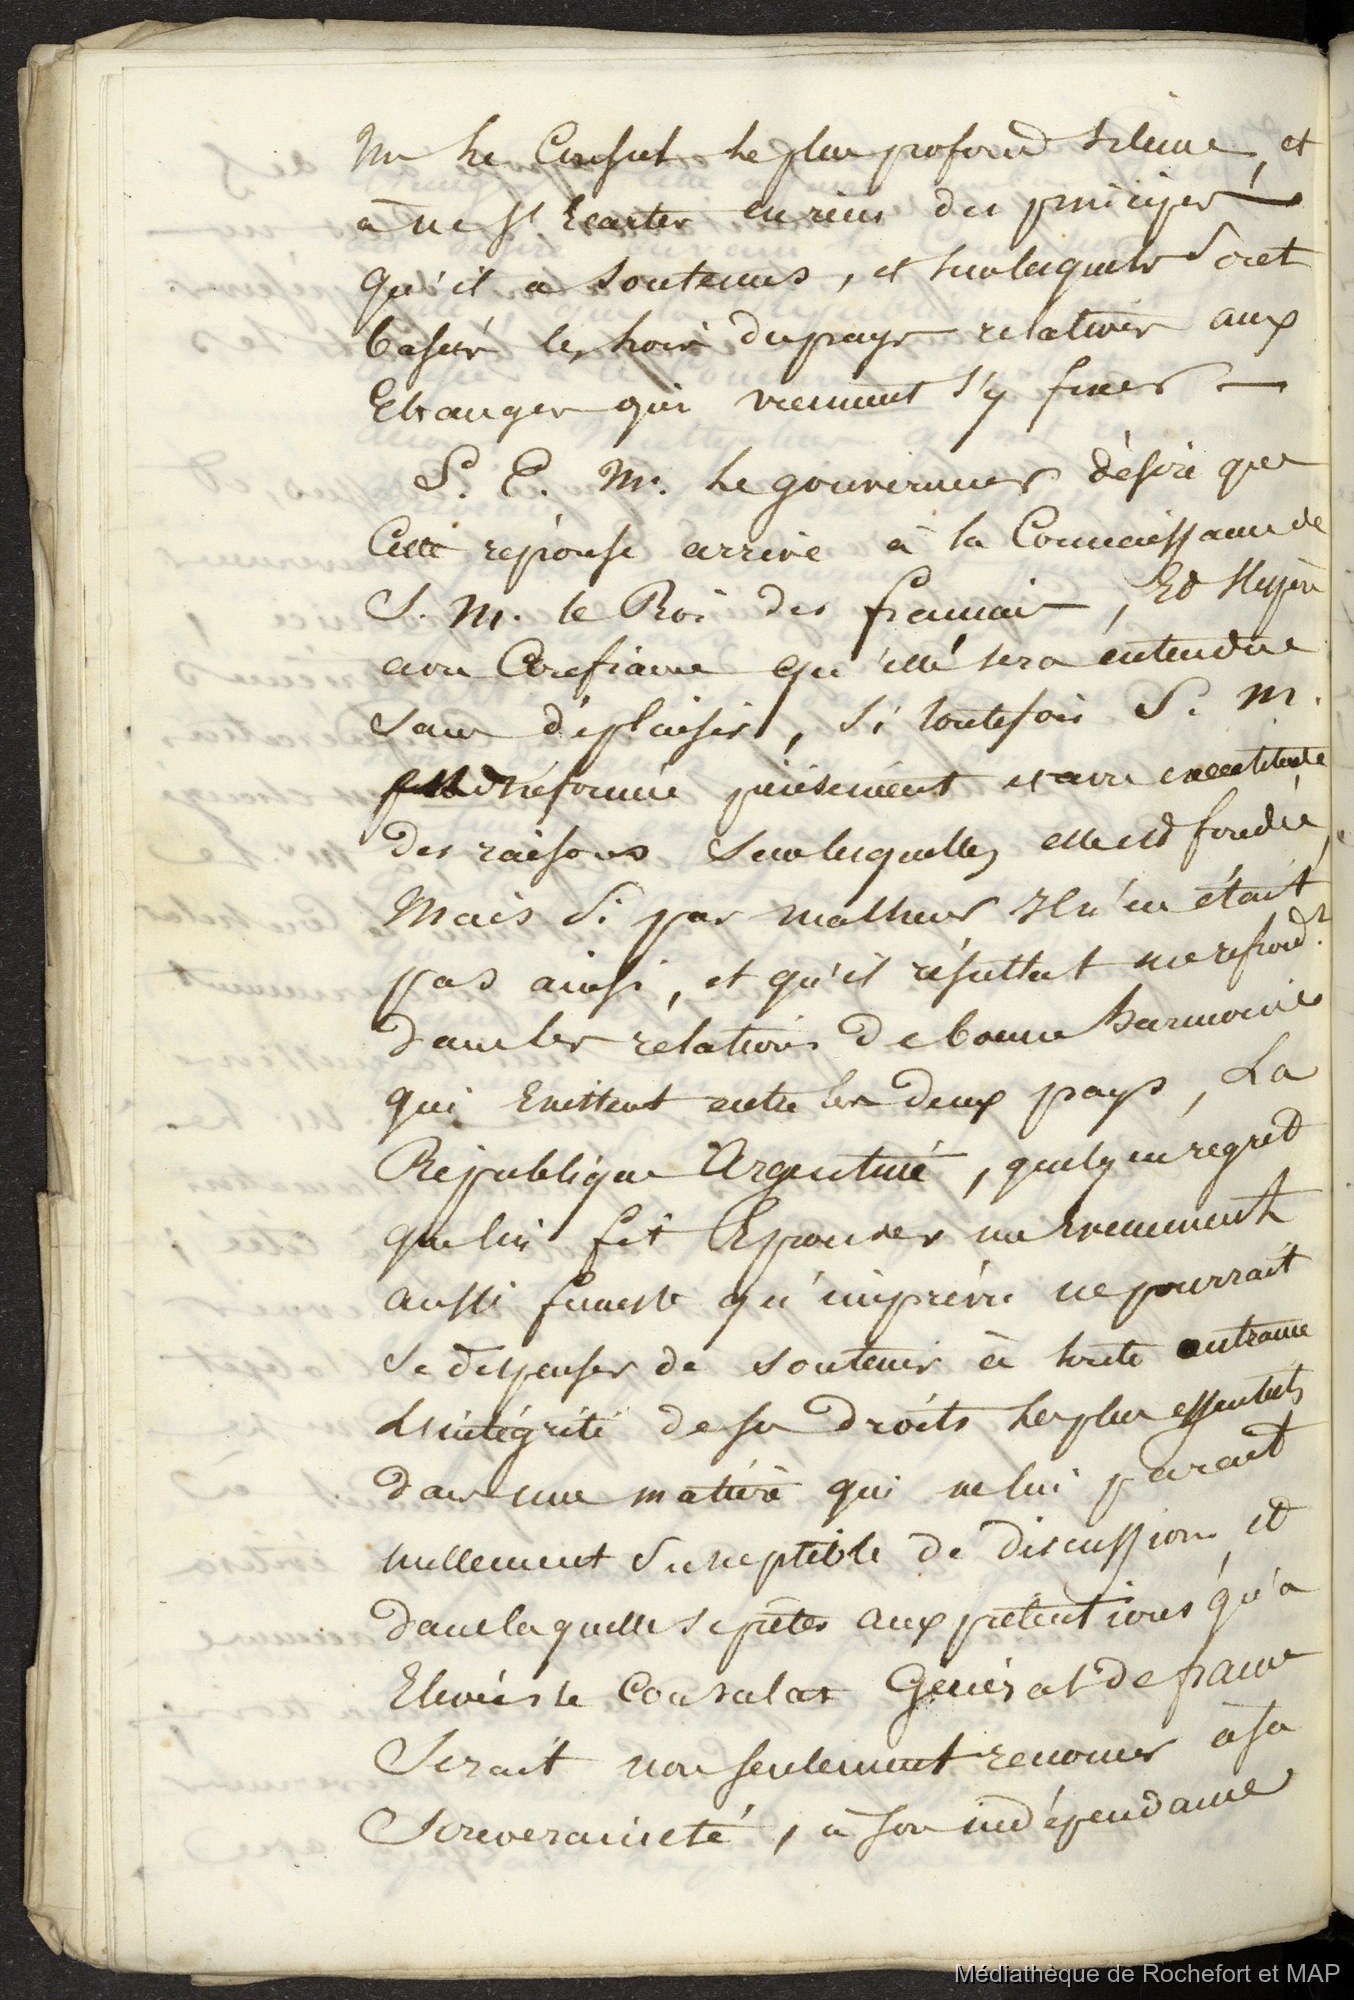 Mr le Consul le plus profond silence, et
à ne s' Ecarter en rien des principes
qu'il a soutenus, et sur lesquels sont
basés les lois du pays relatives aux
Etrangers qui viennent s'y fixer —
S. E. Mr. le gouverneur désire que
Cette réponse arrive à la Connaissance de
S. M. le Roi des français, Et Espère
avec Confiance qu'elle sera entendue
sans déplaisir, si toutefois S. M.
est informée précisément et avec exactitude
des raisons sur lesquelles elle est fondée,
Mais si par malheur Il n'en était
pas ainsi, et qu'il résultat un refroidt
dans les rélations de bonne harmonie
qui Existent entre les deux pays, La
République Argentine, quelque regret
que lui fit Eprouver un Evenement
aussi funeste qu'imprévu ne pourrait
se dispenser de soutenir à toute outrance
L'intégrité de ses droits les plus essentiels
dans une matière qui ne lui parait
nullement susceptible de discussion et
dans laquelle se prêter aux prétentions qu'a
Elevées le Consulat Général de france
Serait non seulement renoncer à sa
Souveraineté, à son indépendance
Médiathèque de Rochefort et MAP